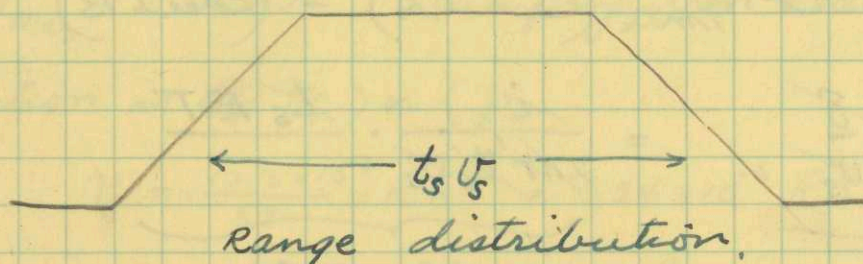 t_s v_s
Range distribution.